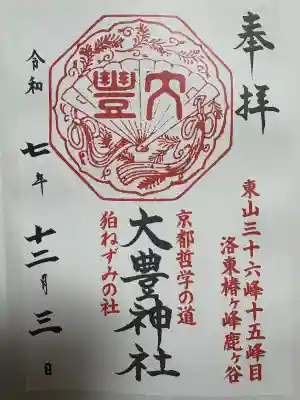 奉拝
東山三十六峰十五峰目
洛東椿ヶ峰鹿ヶ谷
大豐
京都哲学の道
大豊神社
狛ねずみの社
令和七年十二月三日